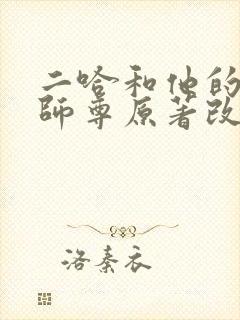 二哈和他的
師尊原著改
洛秦衣